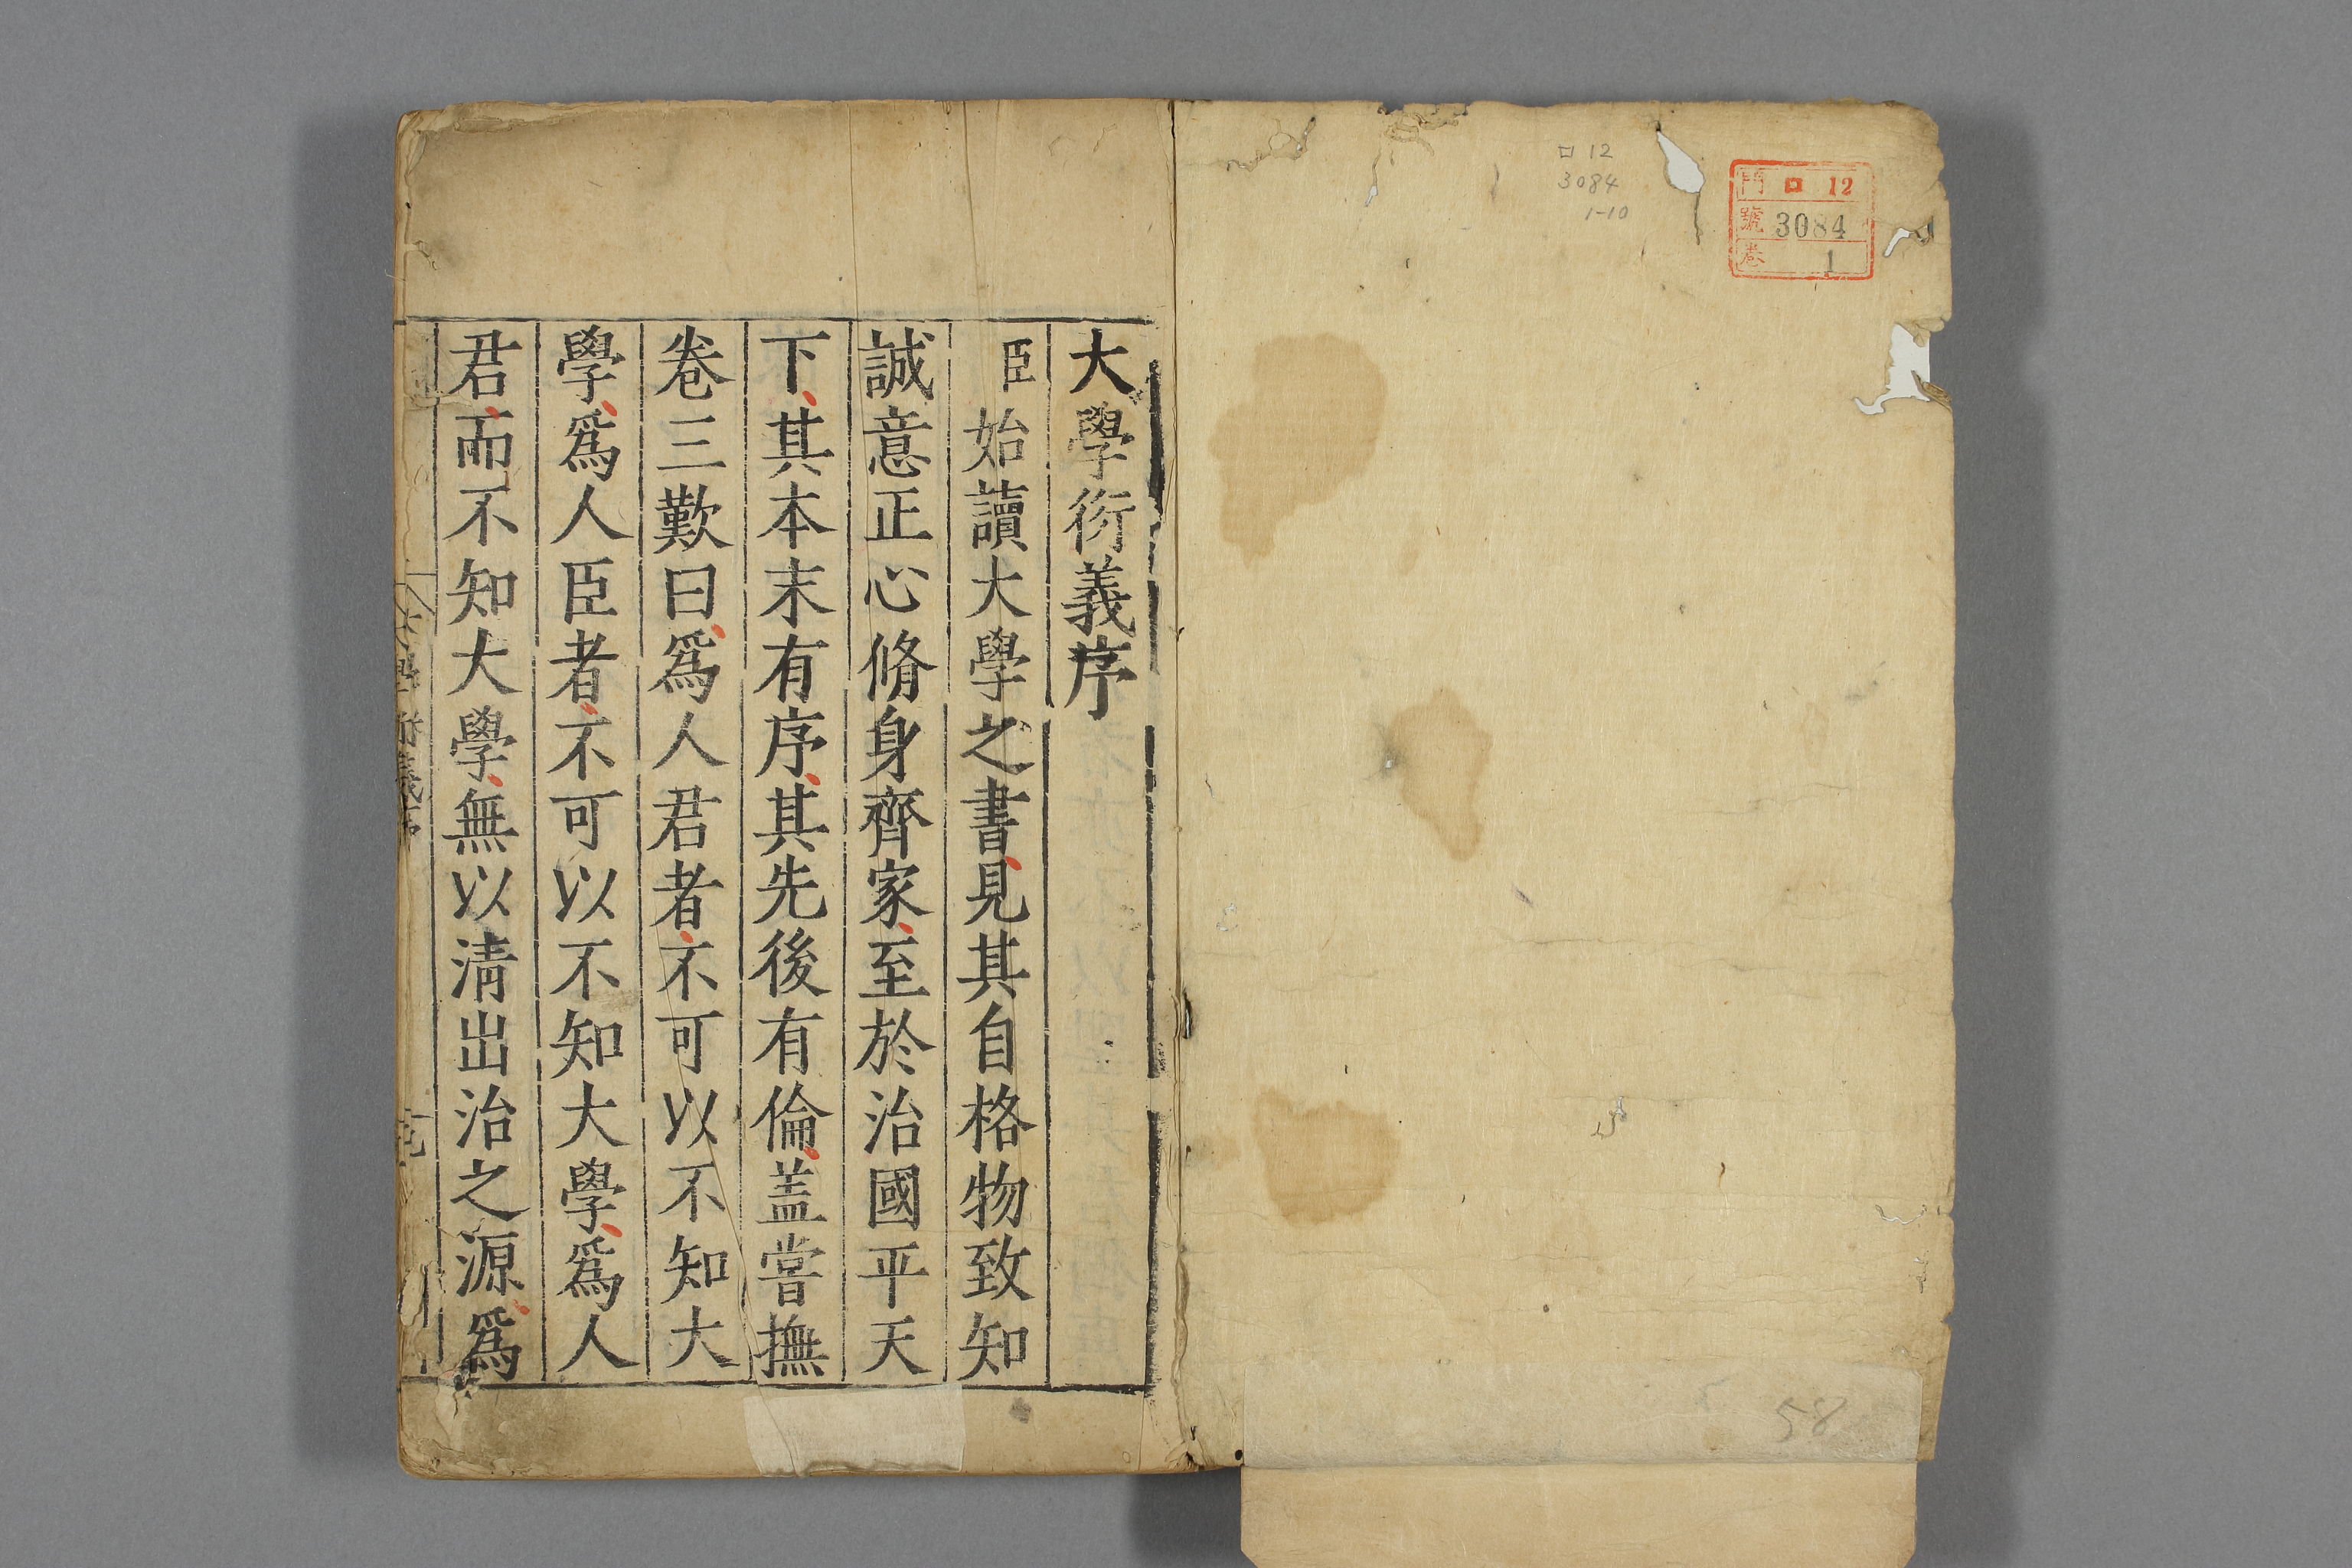 口 12
3084
1-10
門 口 12
號 3084
卷 1
58
大學衍義序
臣始讀大學之書見其自格物致知
誠意正心脩身齊家至於治國平天
下其本末有序其先後有倫盖嘗撫
卷三歎曰爲人君者不可以不知大
學爲人臣者不可以不知大學爲人
君而不知大學無以淸出治之源爲